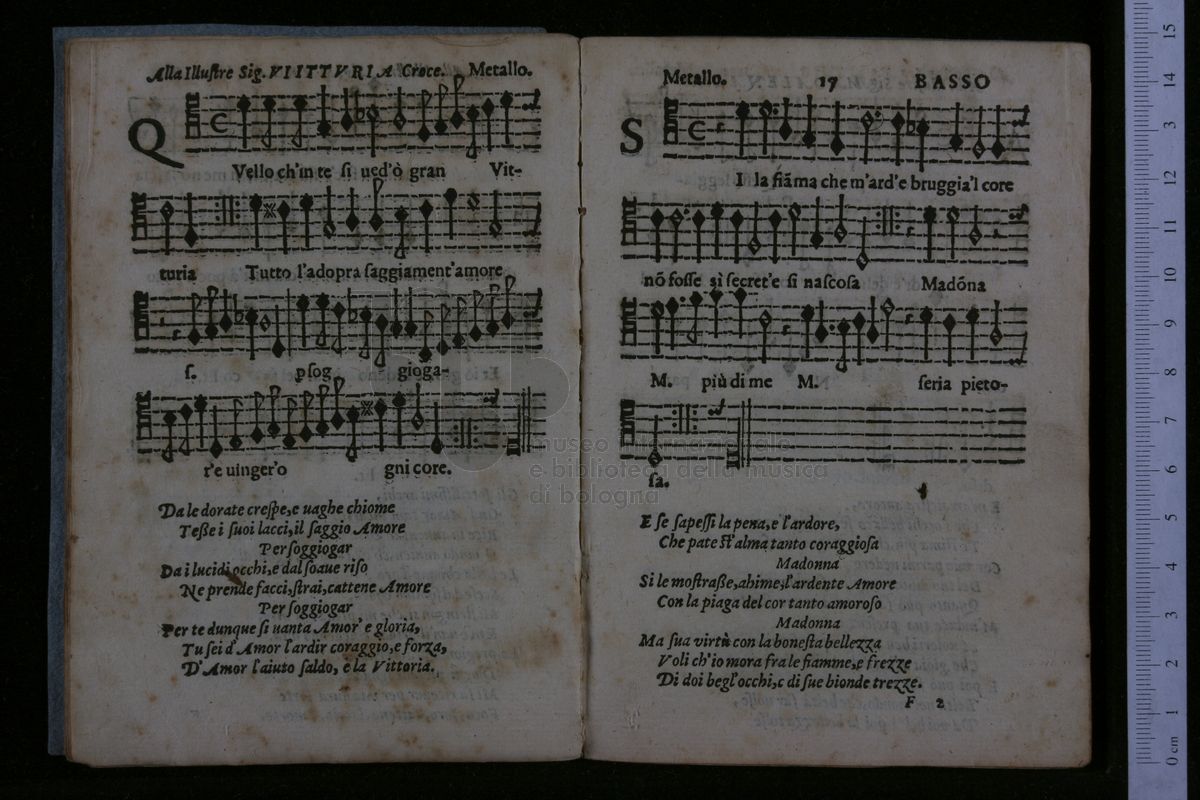 Alla Illustre Sig. VIITTVRIA Croce. Metallo.
QVello ch'in te si ued'ò gran Vit-
turia Tutto l'adopra saggiament'amore
s. psog gioga-
r'e uinger'o gni core.
Da le dorate crespe, e uaghe chiome
Tesse i suoi lacci, il saggio Amore
Per soggiogar
Da i lucidi occhi, e dal soaue riso
Ne prende facci, strai, cattene Amore
Per soggiogar
Per te dunque si uanta Amor' e gloria,
Tu sei d'Amor l'ardir coraggio, e forza,
D'Amor l'aiuto saldo, e la Vittoria.
Metallo. 17 BASSO
SI la fiãma che m'ard'e bruggia'l core
nõ fosse sì secret'e si nascosa Madõna
M. più di me M. seria pieto-
sa.
E se sapessi la pena, e l'ardore,
Che pate st'alma tanto coraggiosa
Madonna
Si le mostrasse, ahime, l'ardente Amore
Con la piaga del cor tanto amoroso
Madonna
Ma sua virtù con la honesta bellezza
Voli ch'io mora fra le fiamme, e frezze
Di doi begl'occhi, e di sue bionde trezze.
F 2
museo internazionale
e biblioteca della musica
di bologna
0 cm 1 2 3 4 5 6 7 8 9 10 11 12 13 14 15